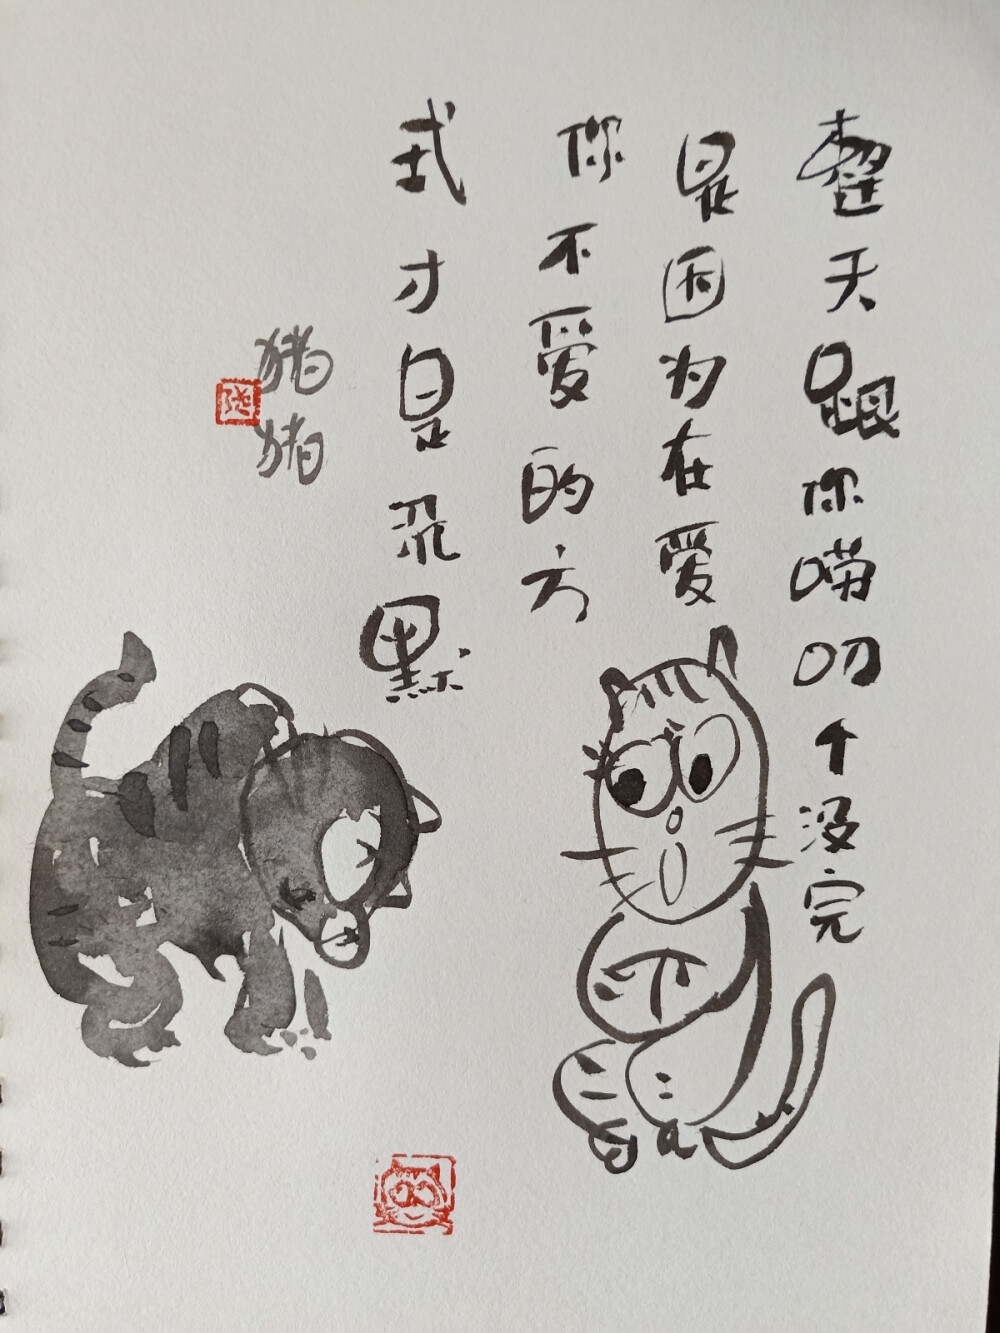 整天跟你唠叨个没完
是因为在爱
你不爱的方
式才是沉默
猪猪